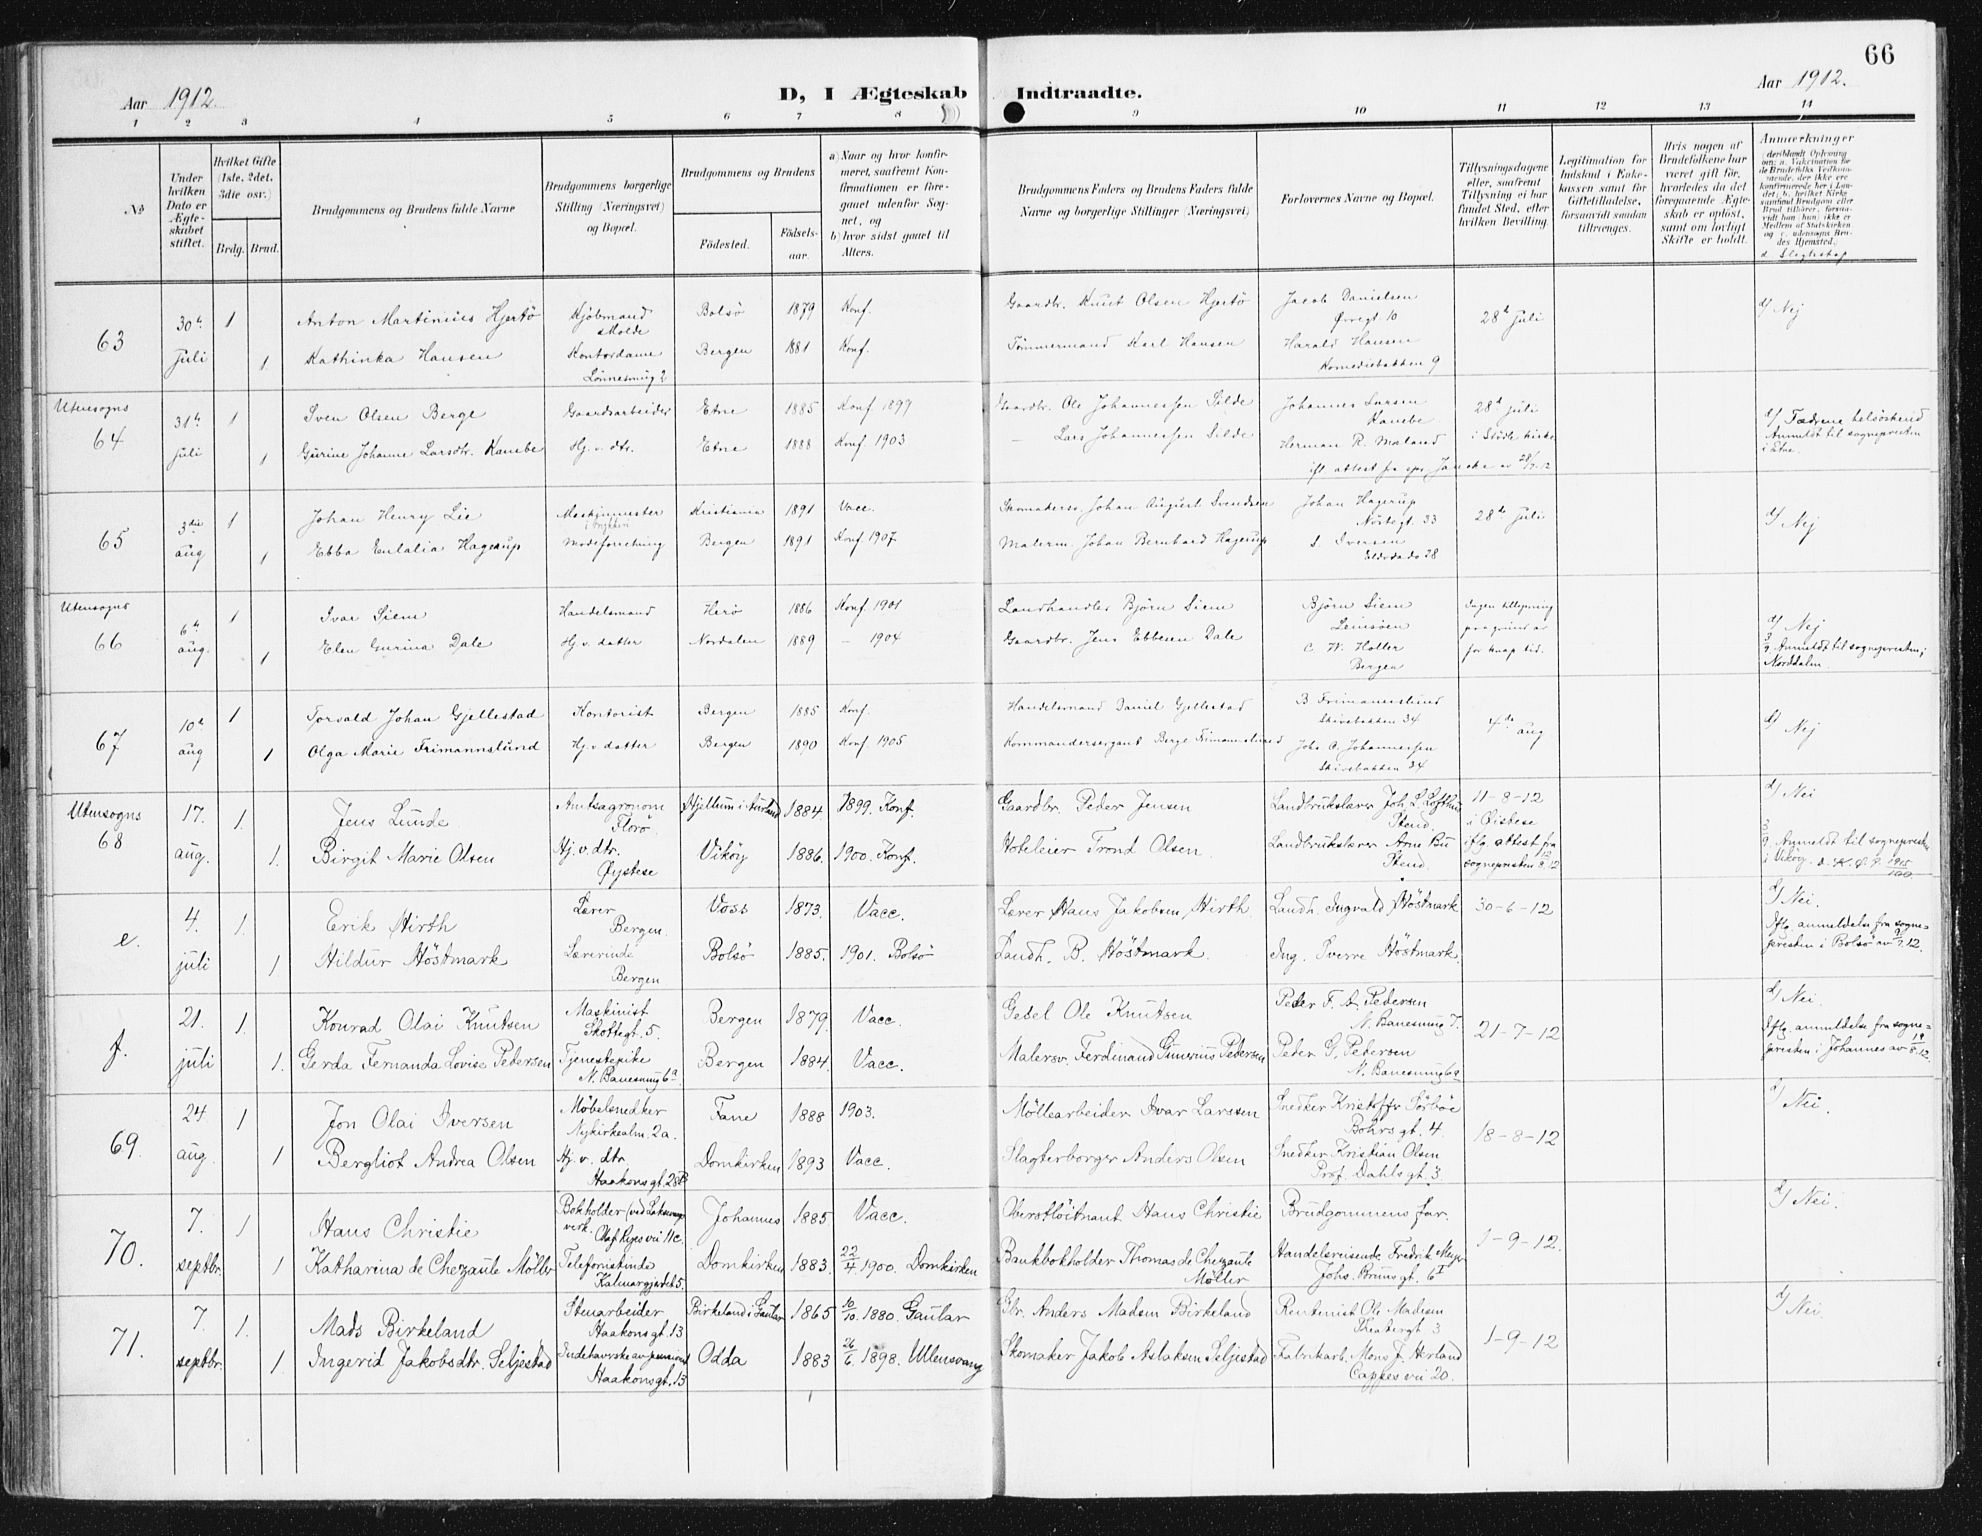 66
Aar 1912.
D, I Ægteskab Indtraadte.
Aar 1912.
1 2 3 4 5 6 7 8 9 10 11 12 13 14
№
Under hvilken Dato er Ægteskabet stiftet.
Hvilket Gifte (1ste, 2det, 3die osv.)
Brdg. Brud.
Brudgommens og Brudens fulde Navne
Brudgommens borgerlige Stilling (Næringsvei) og Bopæl.
Brudgommens og Brudens
Födested.
Födselsaar.
a) Naar og hvor konfirmeret, saafremt Konfirmationen er foregaaet udenfor Sognet, og
b) hvor sidst gaaet til Alters.
Brudgommens Faders og Brudens Faders fulde Navne og borgerlige Stillinger (Næringsvei)
Forlovernes Navne og Bopæl.
Tillysningsdagene eller, saafremt Tillysning ei har fundet Sted, efter hvilken Bevilling.
Legitimation for Indskud i Enkekassen samt for Giftetilladelse, forsaavidt saadan tiltrænges.
Hvis nogen af Brudefolkene har været gift før, hvorledes da det foregaaende Ægteskab er opløst, samt om lovligt Skifte er holdt.
Anmærkninger
d Slegtskap
63 30te 1 Anton Martinius Hjertö Kjöbmand Bolsö 1879 Konf. Gaardbr. Knut Olsen Hjertö Jacob Danielsen d/ Nej
Molde Övregt. 10 28de juli
juli 1 Kathinka Hansen Kontordame Bergen 1881 Konf. Tömmermand Karl Hansen Harald Hansen
Komediebakken 9
Utensogns 31te 1 Sven Olsen Berge Gaardsarbeider Etne 1885 Konf. 1899 Gaardbr. Ole Johannessen Silde Johannes Larsen 28de juli d/ Fædrene helsöskend
64 Kambe Anmeldt til sognepresten
juli 1 Gurine Johanne Larsdtr. Kambe Hj. v. dtr. Etne 1888 Konf 1903 — Lars Johannessen Silde Herman R. Maland i Etne.
ifl. attest fra
65 3die 1 Johan Henry Lie Maskinmester Kristiania 1891 Vacc. Skomakersv. Johan August Svendsen Johan Hagerup 28de juli d/ Nej
Nöstegt. 33
aug 1 Ebba Eulalia Hagerup Modeforretning Bergen 1891 Konf 1907 Malerm. Johan Bernhard Hagerup S. Iversen
28
Utensogns 6te 1 Ivar Siem Handelsmand Herö 1886 Konf 1901 Landhandler Björn Siem Björn Siem Ingen tillysning d/ Nej
66 Leinsöen paa grund av
aug. 1 Elen Gurina Dale Hj. v. datter Nordalen 1889 — 1904 Gaardbr. Jens Ebbesen Dale C. W. Holler for knap tid. Anmeldt til sognepresten i
Bergen Norddalen
67 10de 1 Torvald Johan Gjellestad Kontorist Bergen 1885 Konf. Handelsmand Daniel Gjellestad B Frimannslund 4de aug d/ Nej
Skivebakken 34
aug 1 Olga Marie Frimannslund Hj. v datter Bergen 1890 Konf. 1905 Kommandersergant Berge Frimannslund Johs. A. Johannessen
Skivebakken 34
Utensogns 17. 1. Jens Lunde Amtsagronom Hjellum i Aurland 1884 1899. Konf. Gaardbr. Peder Jensen Landbrukslærer Joh. L. Lofthus 11-8-12 d/ Nei
68 Florö. Stend i Öistese
aug. 1. Birgit Marie Olsen Hj. v. dtr. Viköy 1886. 1900. Konf. Hoteleier Trond Olsen Landbrukslærer Arne Bu iflg. attest fra Anmeldt til sognepresten
Öystese Stend sognepresten i Viköy.
e. 4. 1. Erik Hirth Lærer Voss 1873. Vacc. Lærer Hans Jakobsen Hirth Landh. Ingvald Höstmark 30-6-12 d/ Nei.
Bergen. Iflg. anmeldelse fra sogne-
juli 1 Hildur Höstmark Lærerinde Bolsö 1885. 1901. Bolsö Landh. B. Höstmark. Ing. Sverre Höstmark. presten i Bolsö av 9/7.12.
Bergen
f. 21. 1. Konrad Olai Knutsen Maskinist Bergen 1879. Vacc. Gesel Ole Knutsen Peder F. A. Pedersen 21-7-12 d/ Nei.
Skottegt. 5. N. Banesmug 7. Iflg. anmeldelse fra sogne-
juli 1. Gerda Fernanda Lovise Pedersen Tjenestepike Bergen 1884. Vacc. Malersv. Ferdinand Gunerius Pedersen Peder G. Pedersen presten i Johannes av 19/8.12.
N. Banesmug 6a N. Banesmug 6a
69. 24 1 Jon Olai Iversen Möbelsnedker Fane 1888 1903. Möllearbeider Ivar Larssen Snedker Kristoffer Sörböe 18-8-12 d/ Nei.
Nykirkealm. 2a. Bohrsgt. 4.
aug. 1 Bergliot Andrea Olsen Hj. v. dtr Domkirken 1893 Vacc. Slagterborger Anders Olsen Snedker Kristian Olsen
Haakonsgt. 28B Prof. Dahlsgt. 3
70. 7. 1 Hans Christie Bokholder (ved Johannes 1885 Vacc. Oberstlöitnant Hans Christie Brudgommens far. 1-9-12. d/ Nei.
verk. Olaf Ryes vei 11c.
septbr. 1 Katharina de Chezaule Möller Telefonistinde Domkirken 1883. 22/4. 1900. Domkirken Bankbokholder Thomas de Chezaule Möller Handelsreisende Fredrik Meyer
Kalvargjerdet 5. Johs. Brunsgt. 6I
71. 7. 1. Mads Birkeland Stenarbeider Birkeland i Gaular 1865 10/10. 1880. Gaular Gbr. Anders Madsen Birkeland Rentenist Ole Madsen 1-9-12 d/ Nei.
Haakonsgt. 13 Theatergt 3
septbr. 1. Ingerid Jakobsdtr. Seljestad Indehaverske av pensionat Odda 1883 26/6. 1898. Ullensvang Skomaker Jakob Aslaksen Seljestad Fabrikarb. Mons J. Herland
Haakonsgt. 13 Cappes vei 20.